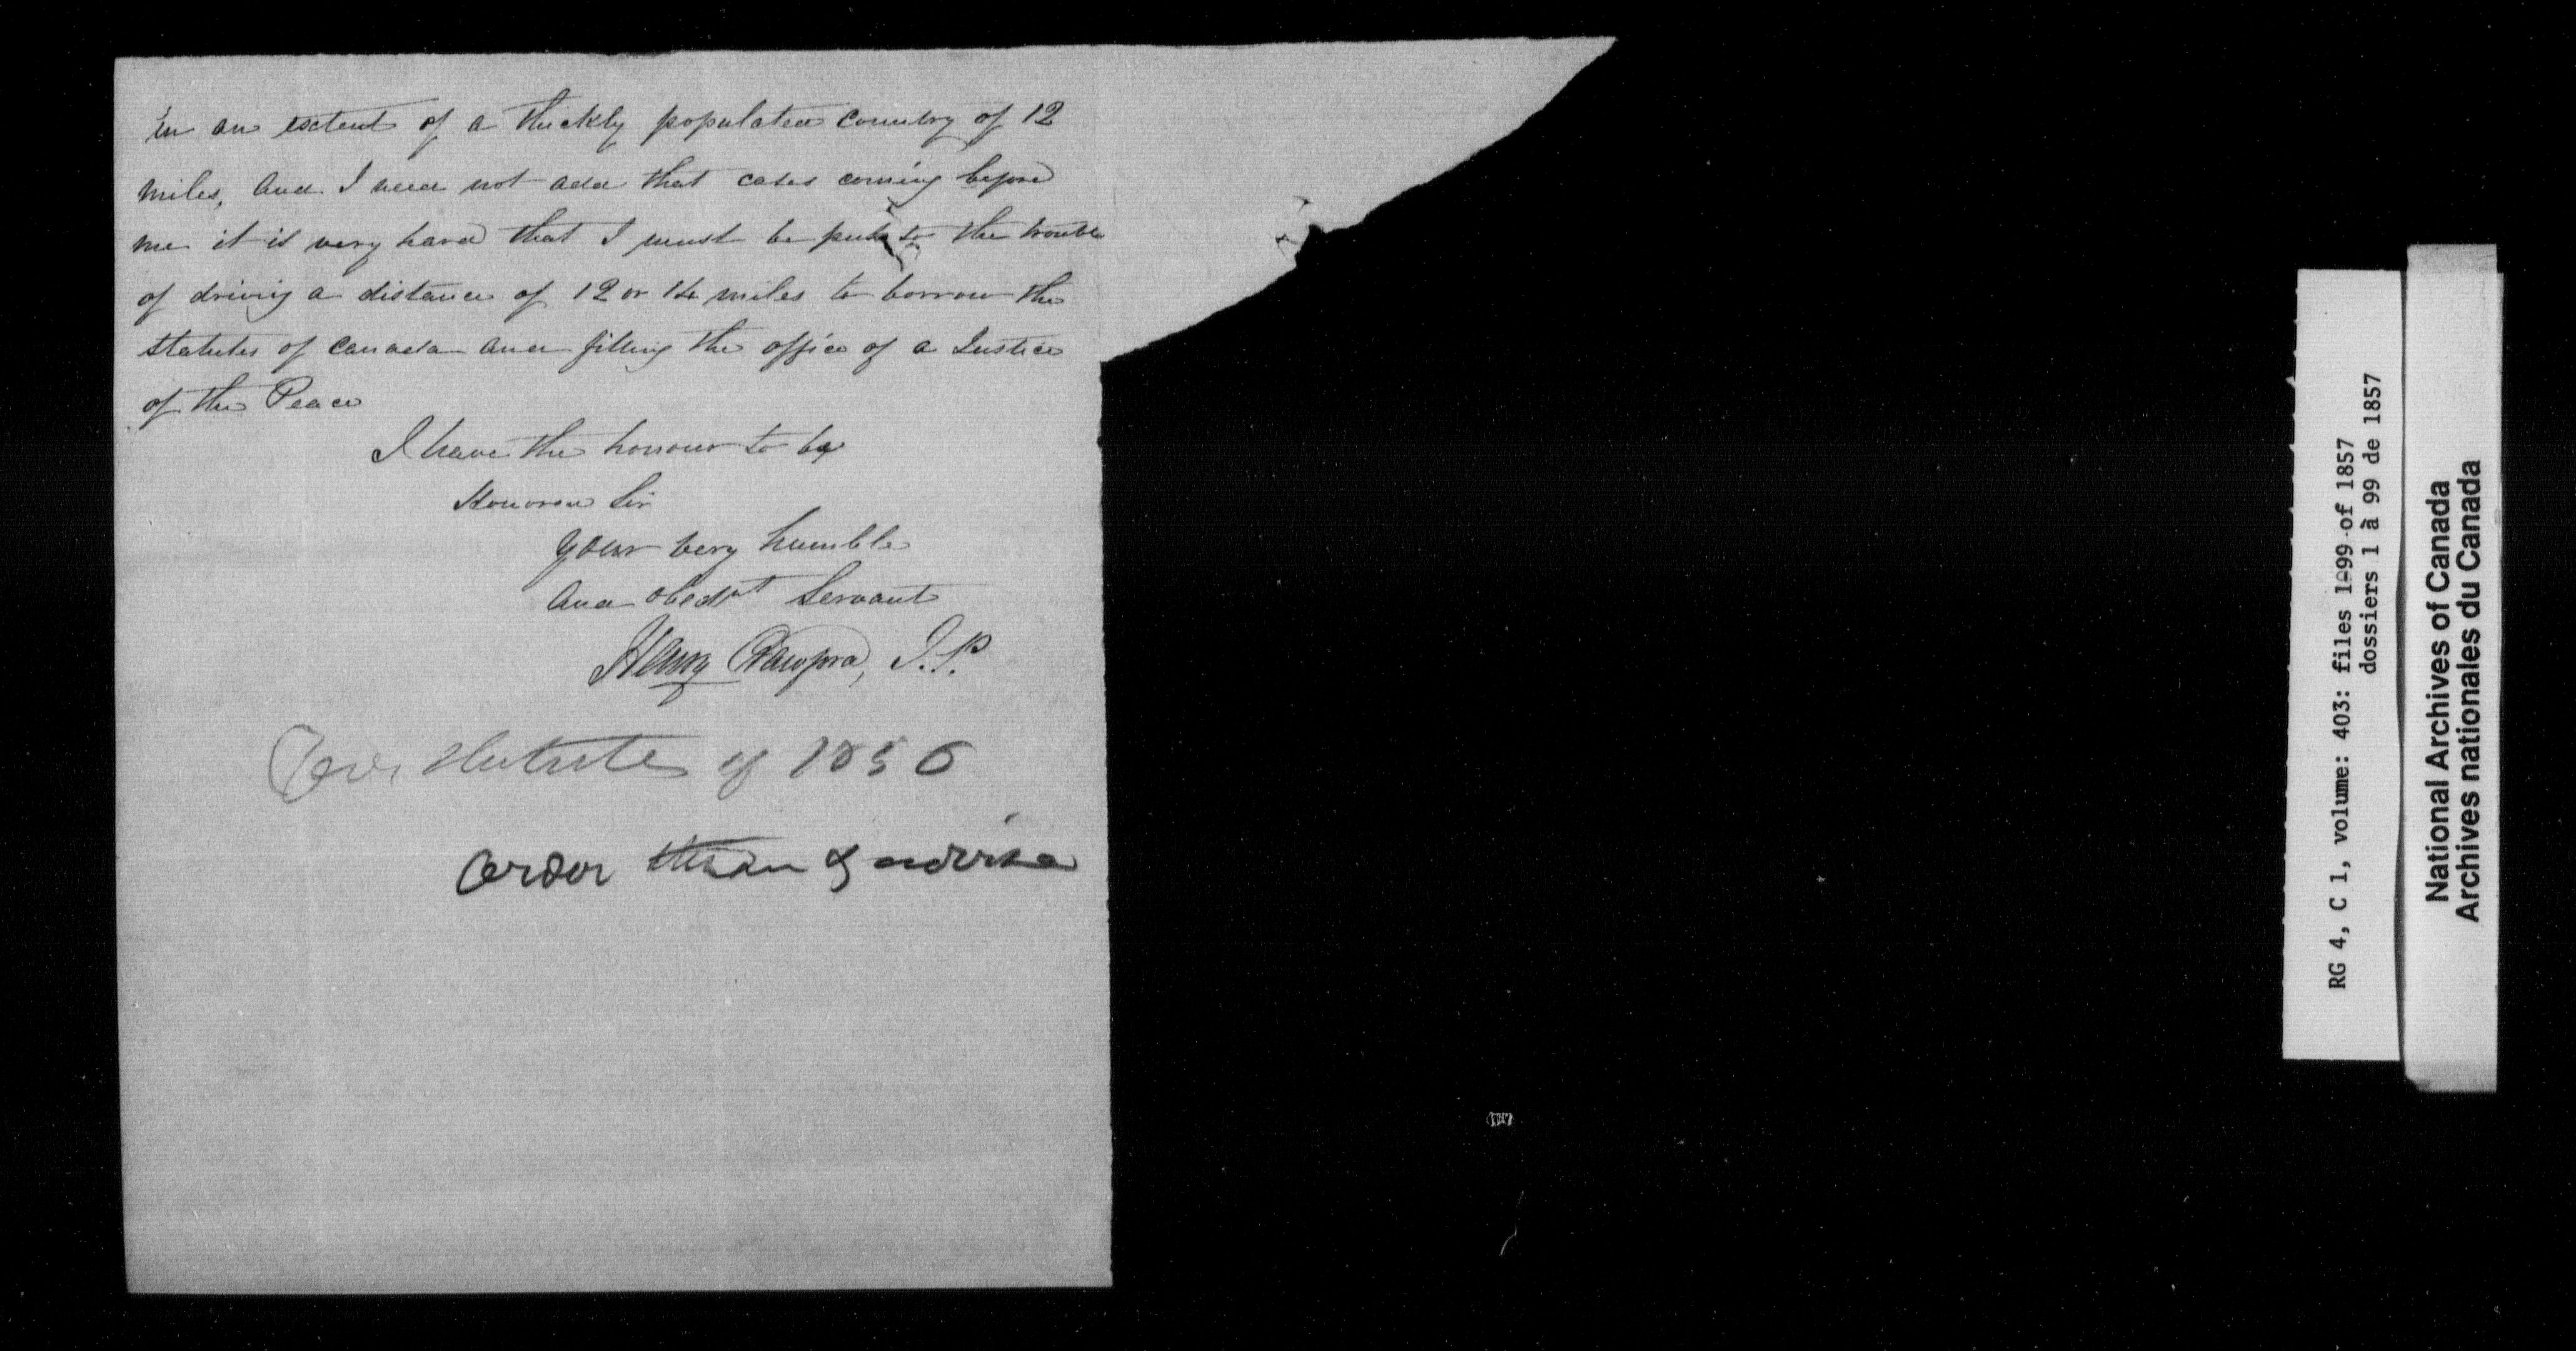 in an extent of a thickly populated country of 12
miles, and I need not add that cases coming before
me it is very hard that I must be put to the trouble
of driving a distance of 12 or 14 miles to borrow the
statutes of Canada and filling the office of a Justice
of the Peace
I have the honour to be
Honored Sir
your very humble
and obedt Servant
Henry Crawford, J.P.
Statutes of 1856
order & advise
RG 4, C 1, volume: 403: files 1-99 of 1857
dossiers 1 à 99 de 1857
National Archives of Canada
Archives nationales du Canada